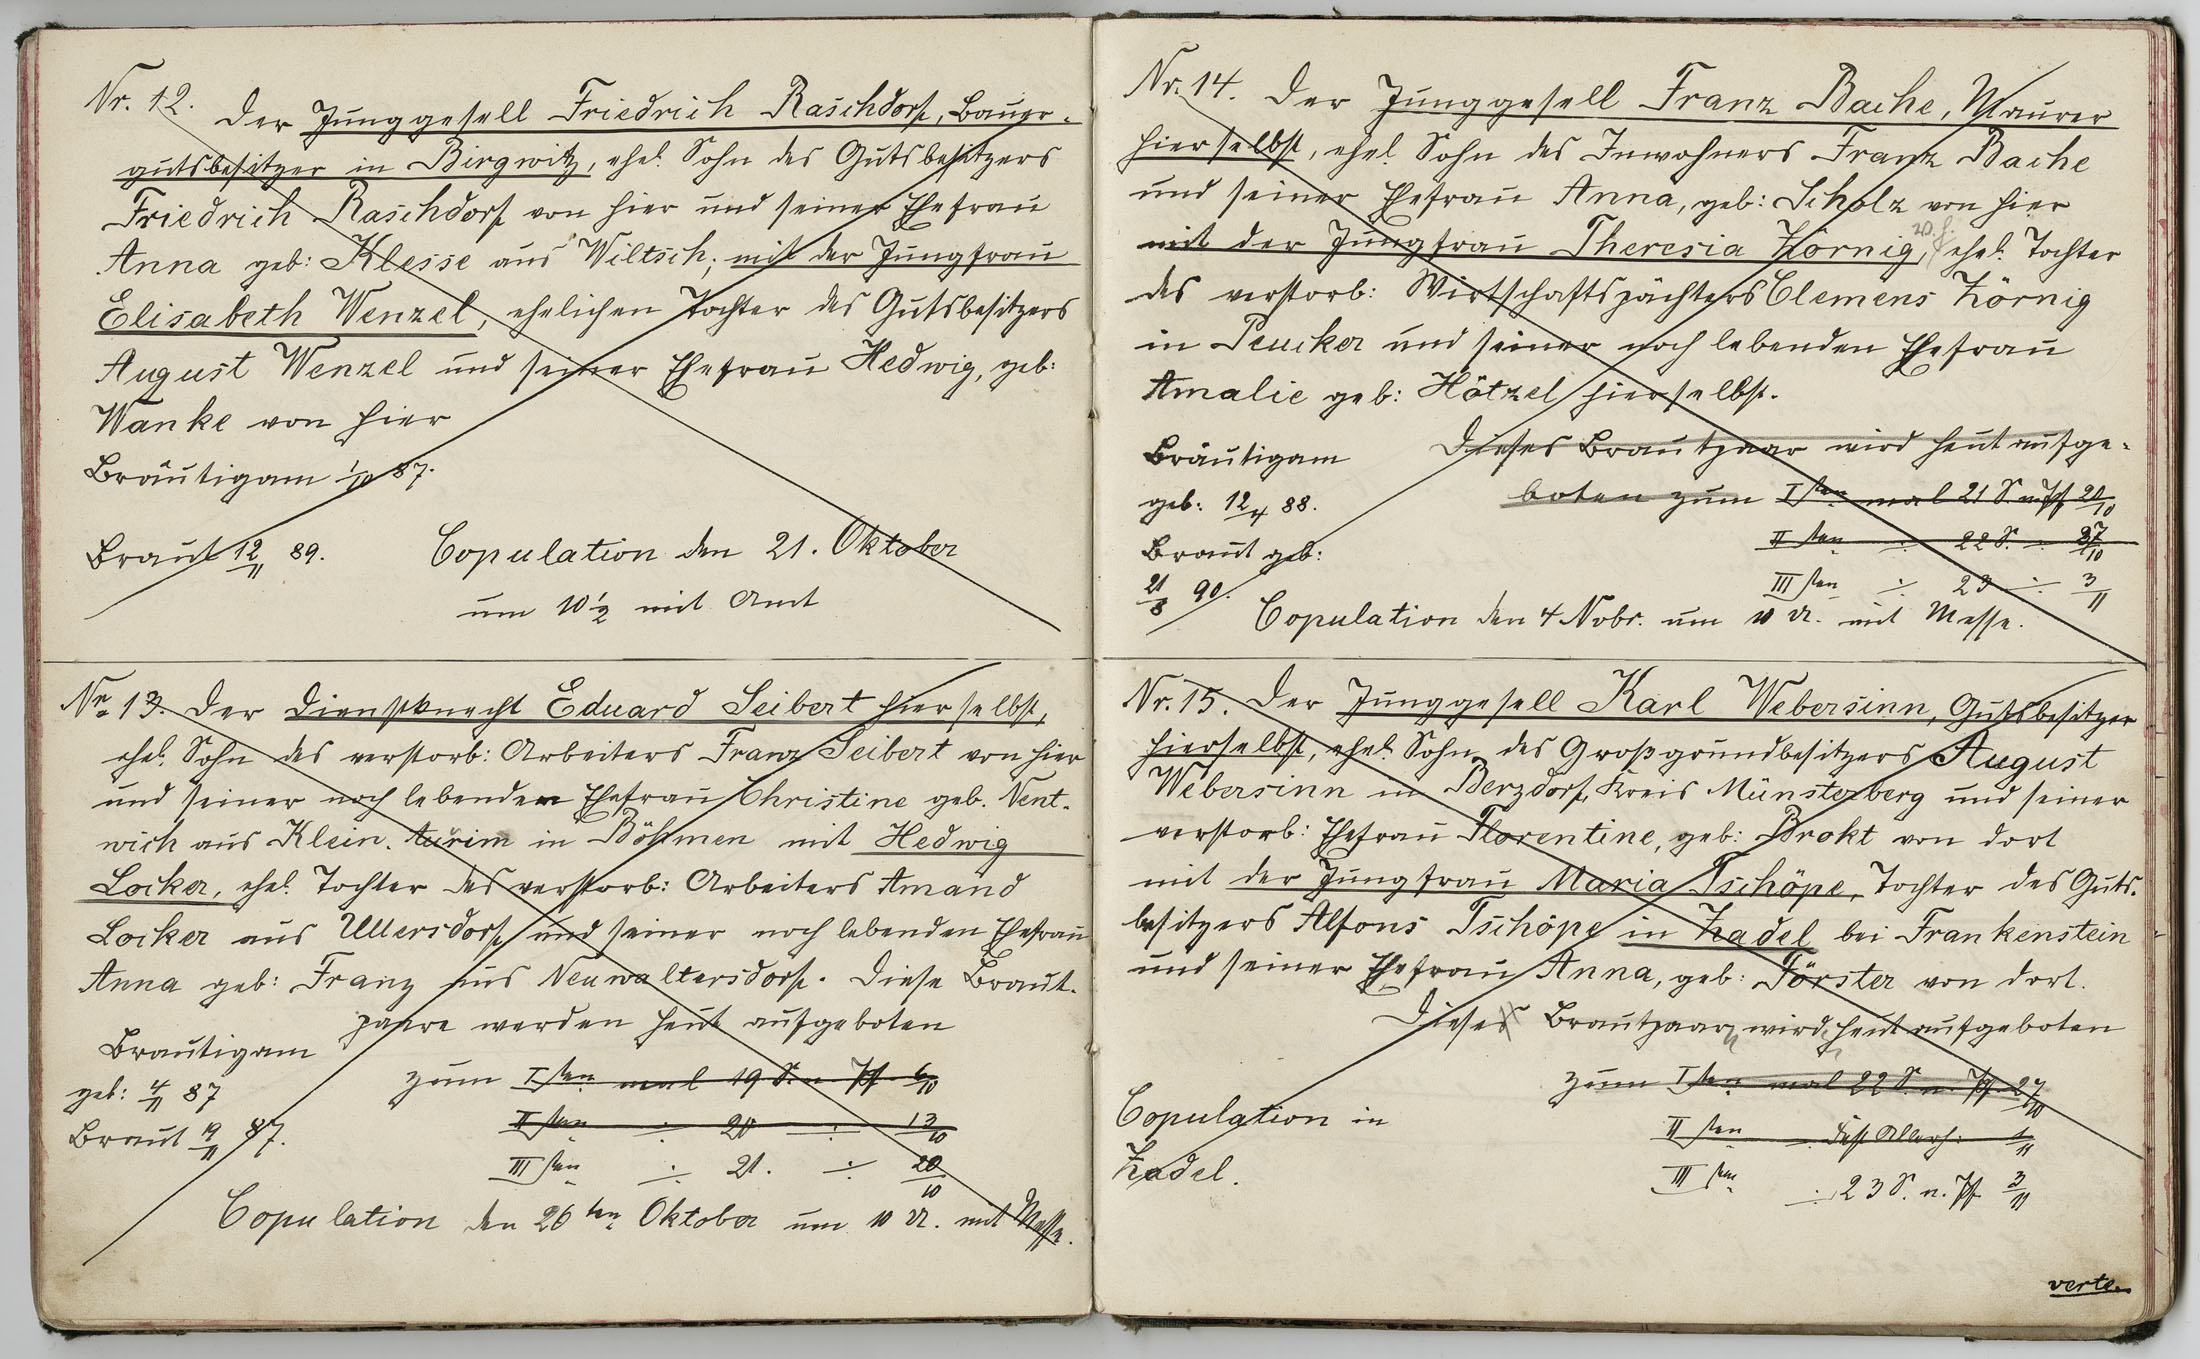 Nr. 12. Der Junggesell Friedrich Raschdorf, Bauer-
gutsbesitzer in Birgwitz, ehel. Sohn des Gutsbesitzers
Friedrich Raschdorf von hier und seiner Ehefrau
Anna geb: Klesse aus Wiltsch, mit der Jungfrau
Elisabeth Wenzel, ehelichen Tochter des Gutsbesitzers
August Wenzel und seiner Ehefrau Hedwig, geb:
Wanke von hier
Bräutigam 1/10 87.
Braut 12/11 89. Copulation den 21. Oktober
um 10 1/2 mit Amt
No 13. Der Dienstknecht Eduard Seibert hierselbst,
ehel. Sohn des verstorb: Arbeiters Franz Seibert von hier
und seiner noch lebenden Ehefrau Christine geb. Nent-
wich aus Klein. in Böhmen mit Hedwig
Locker, ehel. Tochter des verstorb: Arbeiters Amand
Locker aus Ullersdorf und seiner noch lebenden Ehefrau
Anna geb: Franz aus Neuwaltersdorf. Diese Braut-
paare werden heut aufgeboten
Bräutigam
geb: 4/11 87
Braut 19/11 87.
zum I sten mal 19 S. n. Pf. 6/10
II sten ÷ 20 ÷ 13/10
III sten ÷ 21. ÷ 20/10
Copulation den 26 ten Oktober um 10 U. mit Messe.
Nr. 14. Der Junggesell Franz Bache, Maurer
hierselbst, ehel. Sohn des Inwohners Franz Bache
und seiner Ehefrau Anna, geb: Scholz von hier
mit der Jungfrau Theresia Zörnig, v. h. ehel. Tochter
des verstorb: Wirtschaftspächters Clemens Zörnig
in Peucker und seiner noch lebenden Ehefrau
Amalie geb: Hötzel hierselbst.
Bräutigam
geb: 12/4 88.
Braut geb:
21/8 90.
Dieses Brautpaar wird heut aufge-
boten zum I sten mal 21 S. n. Pf 20/10
II sten ÷ 22 S. ÷ 27/10
III sten ÷ 23 ÷ 3/11
Copulation den 4 Nobr. um 10 U. mit Messe.
Nr. 15. Der Junggesell Karl Webersinn, Gutsbesitzer
hierselbst, ehel. Sohn des Großgrundbesitzers August
Webersinn in Berzdorf, Kreis Münsterberg und seiner
verstorb: Ehefrau Florentine, geb: Brokt von dort
mit der Jungfrau Maria Tschöpe, Tochter des Guts-
besitzers Alfons Tschöpe in Zadel bei Frankenstein
und seiner Ehefrau Anna, geb: Förster von dort.
Dieses Brautpaar wird heut aufgeboten
zum I sten mal 22 S. n. Pf. 27/10
II sten ÷ Fest Allerh: 1/11
III sten ÷ 23 S. n. Pf. 3/11
Copulation in
Zadel.
verte.